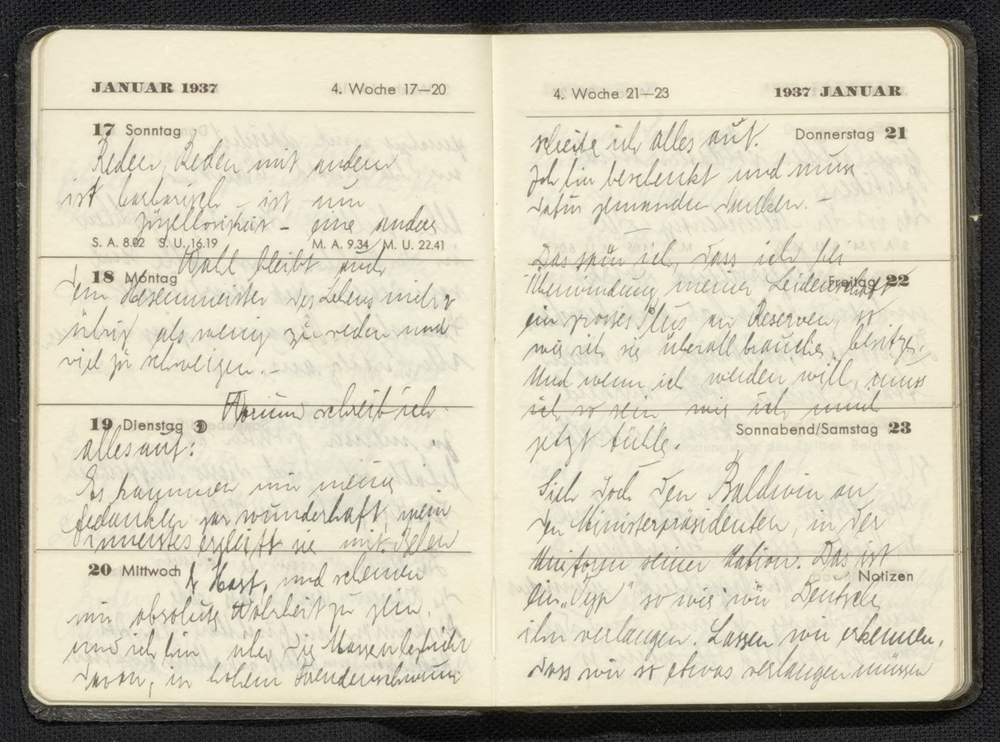 JANUAR 1937 4. Woche 17—20
17 Sonntag
Reden, Reden mit andern
ist barbarisch – ist nur
– eine andere
S. A. 8.02 S. U. 16.19 M. A. 9.34 M. U. 22.41
Wahl bleibt auch
18 Montag
dem Hexenmeister des Lebens nicht
übrig als wenig zu reden und
viel zu schweigen. –
Warum schreib ich
19 Dienstag
alles auf:
Es kommen mir meine
Gedanken gar wunderhaft, mein
Innerstes ergreift sie mit
20 Mittwoch
u. Hast, und scheinen
mir absolute Wahrheit zu sein.
und ich bin über die
davon, in hohem
4. Woche 21—23 1937 JANUAR
Donnerstag 21
schreibe ich alles auf.
Ich bin beschenkt und muss
dafür jemanden danken. –
Das sah ich, dass ich bei
Freitag 22
Überwindung meiner Leidenschaft
ein grosses Plus an Reserven, so
wie ich sie überall brauche, besitze.
Und wenn ich werden will, muss
ich so sein wie ich mich
Sonnabend/Samstag 23
jetzt fühle.
Sieh doch den Baldwin an
den Ministerpräsidenten, in der
Uniform seiner Nation. Das ist
Notizen
ein „Typ" so wie wir Deutsche
ihn verlangen. Lassen wir erkennen,
dass wir so etwas verlangen müssen